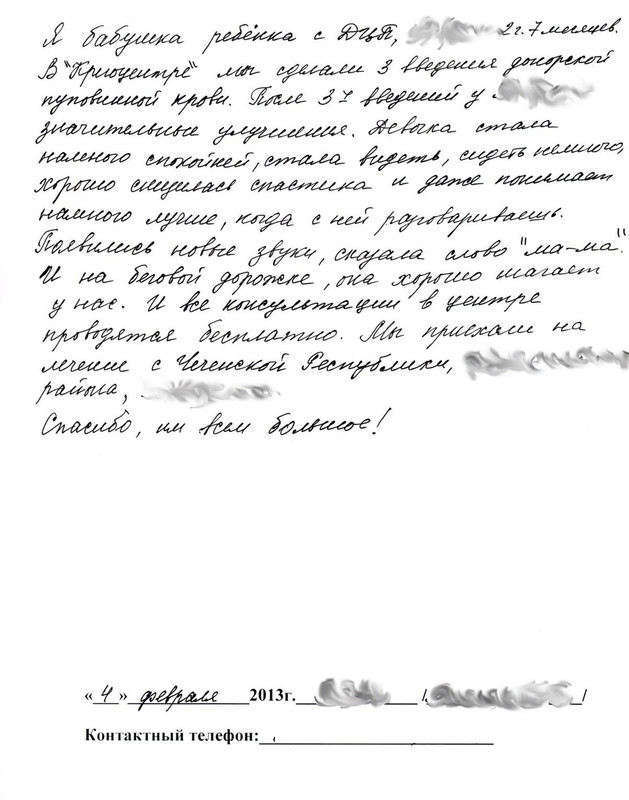 Я бабушка ребёнка с ДЦП, 2г. 7 месяцев.
В "Криоцентре" мы сделали 3 введения донорской
пуповинной крови. После 3х введений у
значительные улучшения. Девочка стала
намного спокойней, стала видеть, сидеть немного,
хорошо снизилась спастика и даже понимает
намного лучше, когда с ней разговариваешь.
Появились новые звуки, сказала слово "ма-ма".
И на беговой дорожке, она хорошо шагает
у нас. И все консультации в центре
проводятся бесплатно. Мы приехали на
лечение с Чеченской Республики,
района,
Спасибо, им всем большое!
« 4 » февраля 2013г. / /
Контактный телефон: